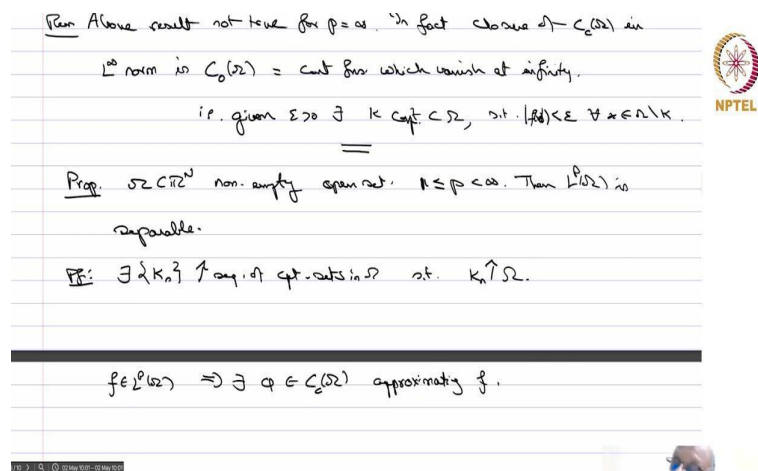 Rem Above result not true for p = ∞. In fact closure of C_c(Ω) in
L^∞ norm is C_0(Ω) = cont fns which vanish at infinity.
i.e. given ε>0 ∃ K cpt. ⊂ Ω, s.t. |f(x)|<ε ∀ x∈Ω\K.
NPTEL
Prop. Ω⊂ℝ^N non-empty open set. 1≤p<∞. Then L^p(Ω) is
separable.
Pf: ∃{K_n} ↑ seq. of cpt. sets in Ω s.t. K_n↑Ω.
f∈L^p(Ω) ⇒ ∃ φ ∈ C_c(Ω) approximating f.
02 May 10:01 - 02 May 10:01